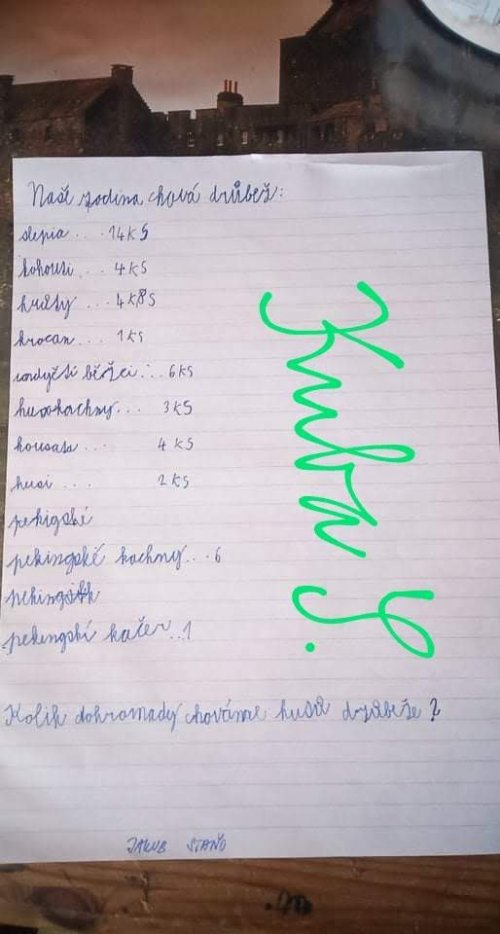 Naše rodina chová drůbež:
slepic ... 14 KS
kohouti ... 4 KS
krůty ... 4 KS
krocan ... 1 KS
indyčtí běžci ... 6 KS
husokachny ... 3 KS
housata ... 4 KS
husi ... 2 KS
pekigské
pekingské kachny ... 6
pekingsk
pekengskí kačer ... 1
Kolik dohromady chováme kusů drůbeže?
JAKUB STAŇO
Kuba S.